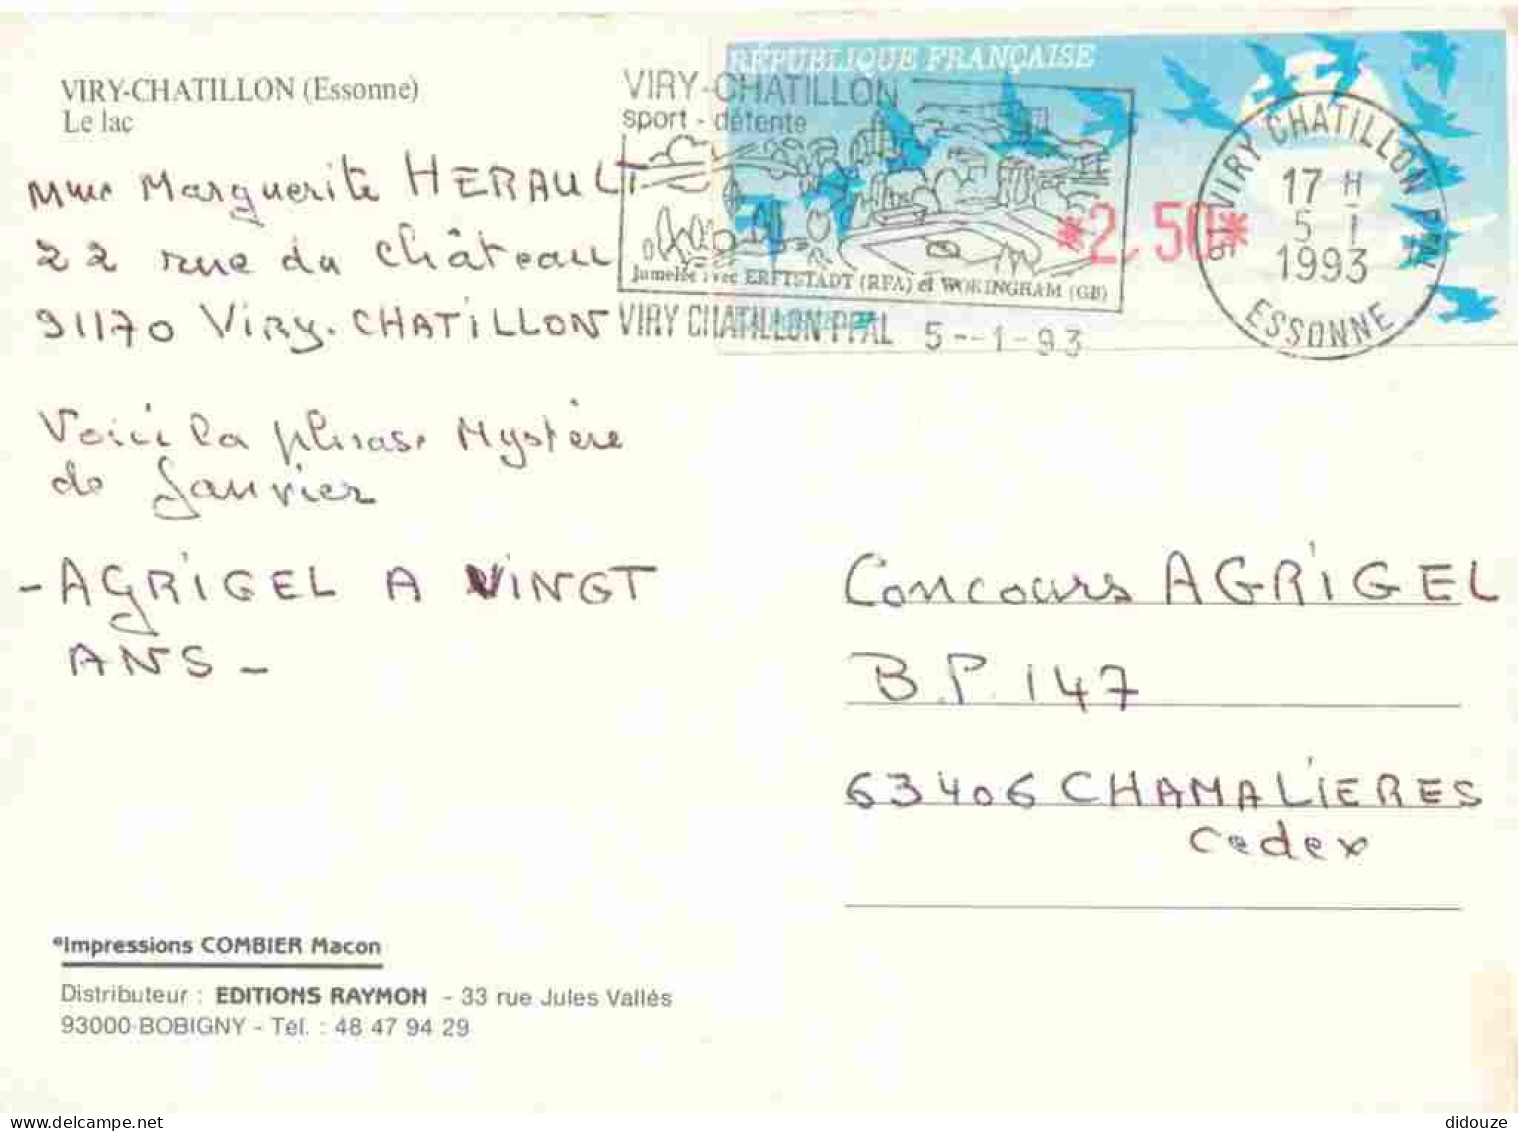 VIRY-CHATILLON (Essonne)
Le lac
RÉPUBLIQUE FRANÇAISE
VIRY-CHATILLON
sport - détente
Jumelée avec ERFTSTADT (RFA) et WOKINGHAM (GB)
VIRY CHATILLON PPAL 5 - 1 - 93
*2,50*
91 VIRY CHATILLON PAL
17 H
5 - 1
1993
ESSONNE
Mme Marguerite HERAULT
22 rue du Château
91170 Viry-CHATiLLON
Voici la phrase Mystère
de Janvier
- AGRIGEL A VINGT
ANS -
Concours AGRIGEL
B.P. 147
63406 CHAMALIERES
Cedex
*Impressions COMBIER Macon
Distributeur : EDITIONS RAYMON - 33 rue Jules Vallés
93000 BOBIGNY - Tél. : 48 47 94 29
delcampe.net
didouze